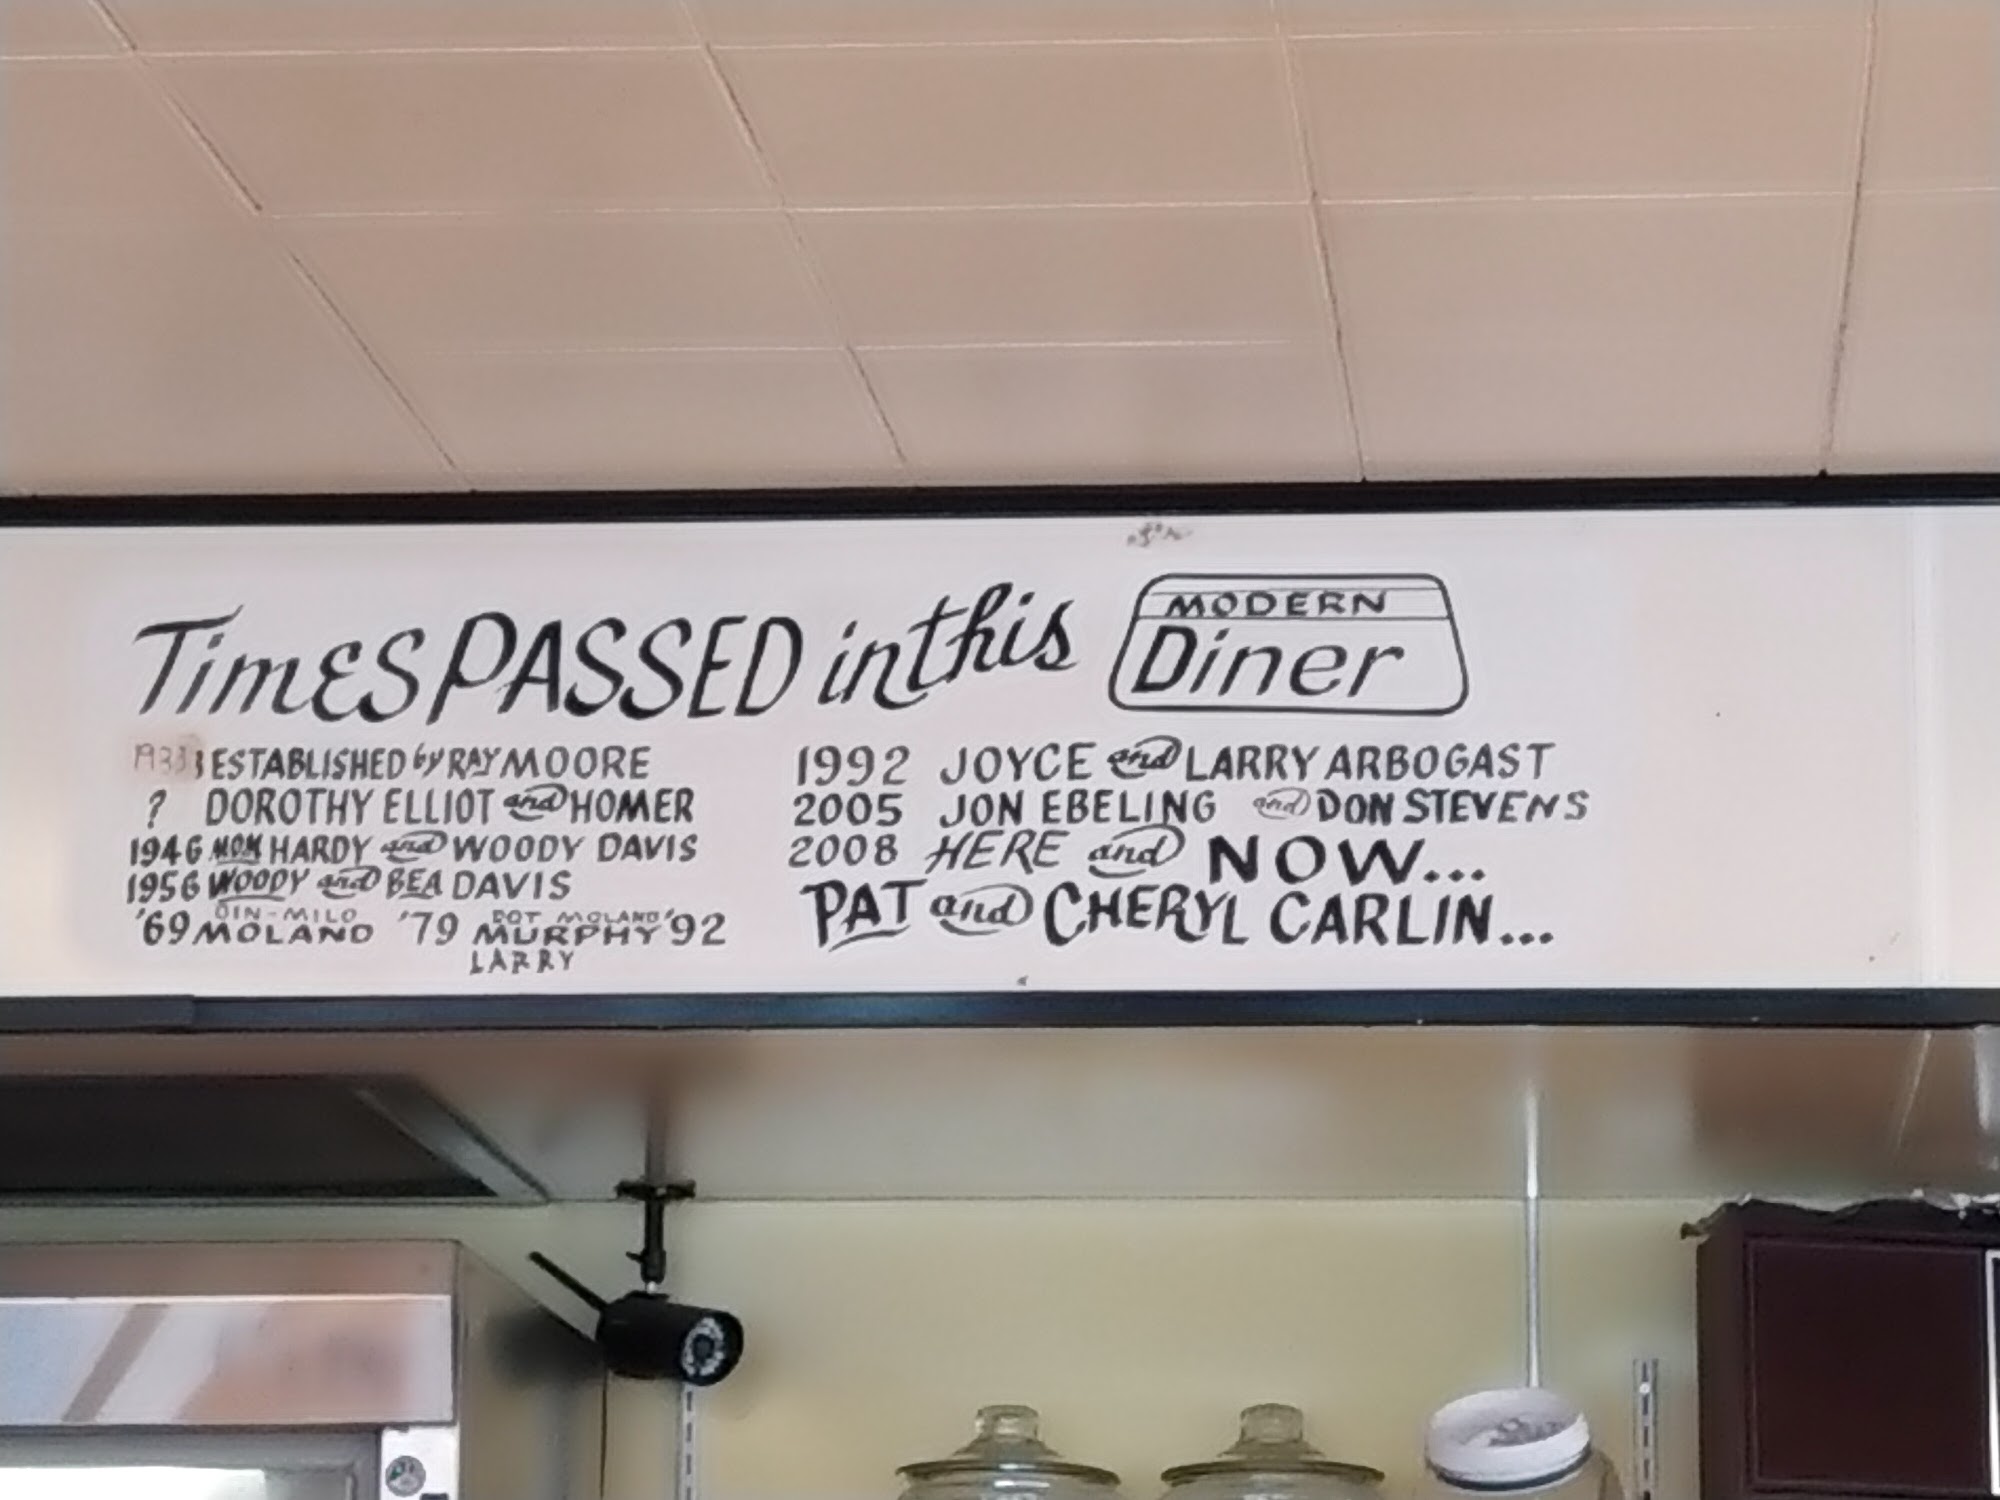 Times PASSED in this MODERN Diner
1938 ESTABLISHED by RAY MOORE
? DOROTHY ELLIOT and HOMER
1946 MOM HARDY and WOODY DAVIS
1956 WOODY and BEA DAVIS
'69 MOLAND '79 DOT MOLAND MURPHY '92
LARRY
1992 JOYCE and LARRY ARBOGAST
2005 JON EBELING and DON STEVENS
2008 HERE and NOW...
PAT and CHERYL CARLIN...